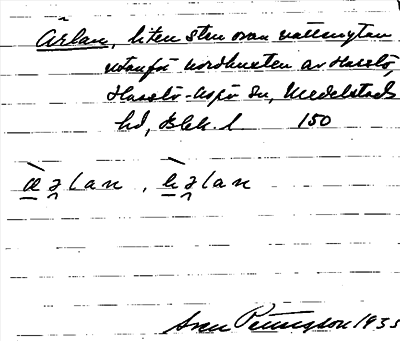 Ärlan, liten sten ovan vattenytan
utanför nordkusten av Hasslö,
Hasslö-Aspö sn, Medelstads
hd, Blek. l. 150
æ̀ɘlan, æ̀ɘlan
Sven Benngtson 1935